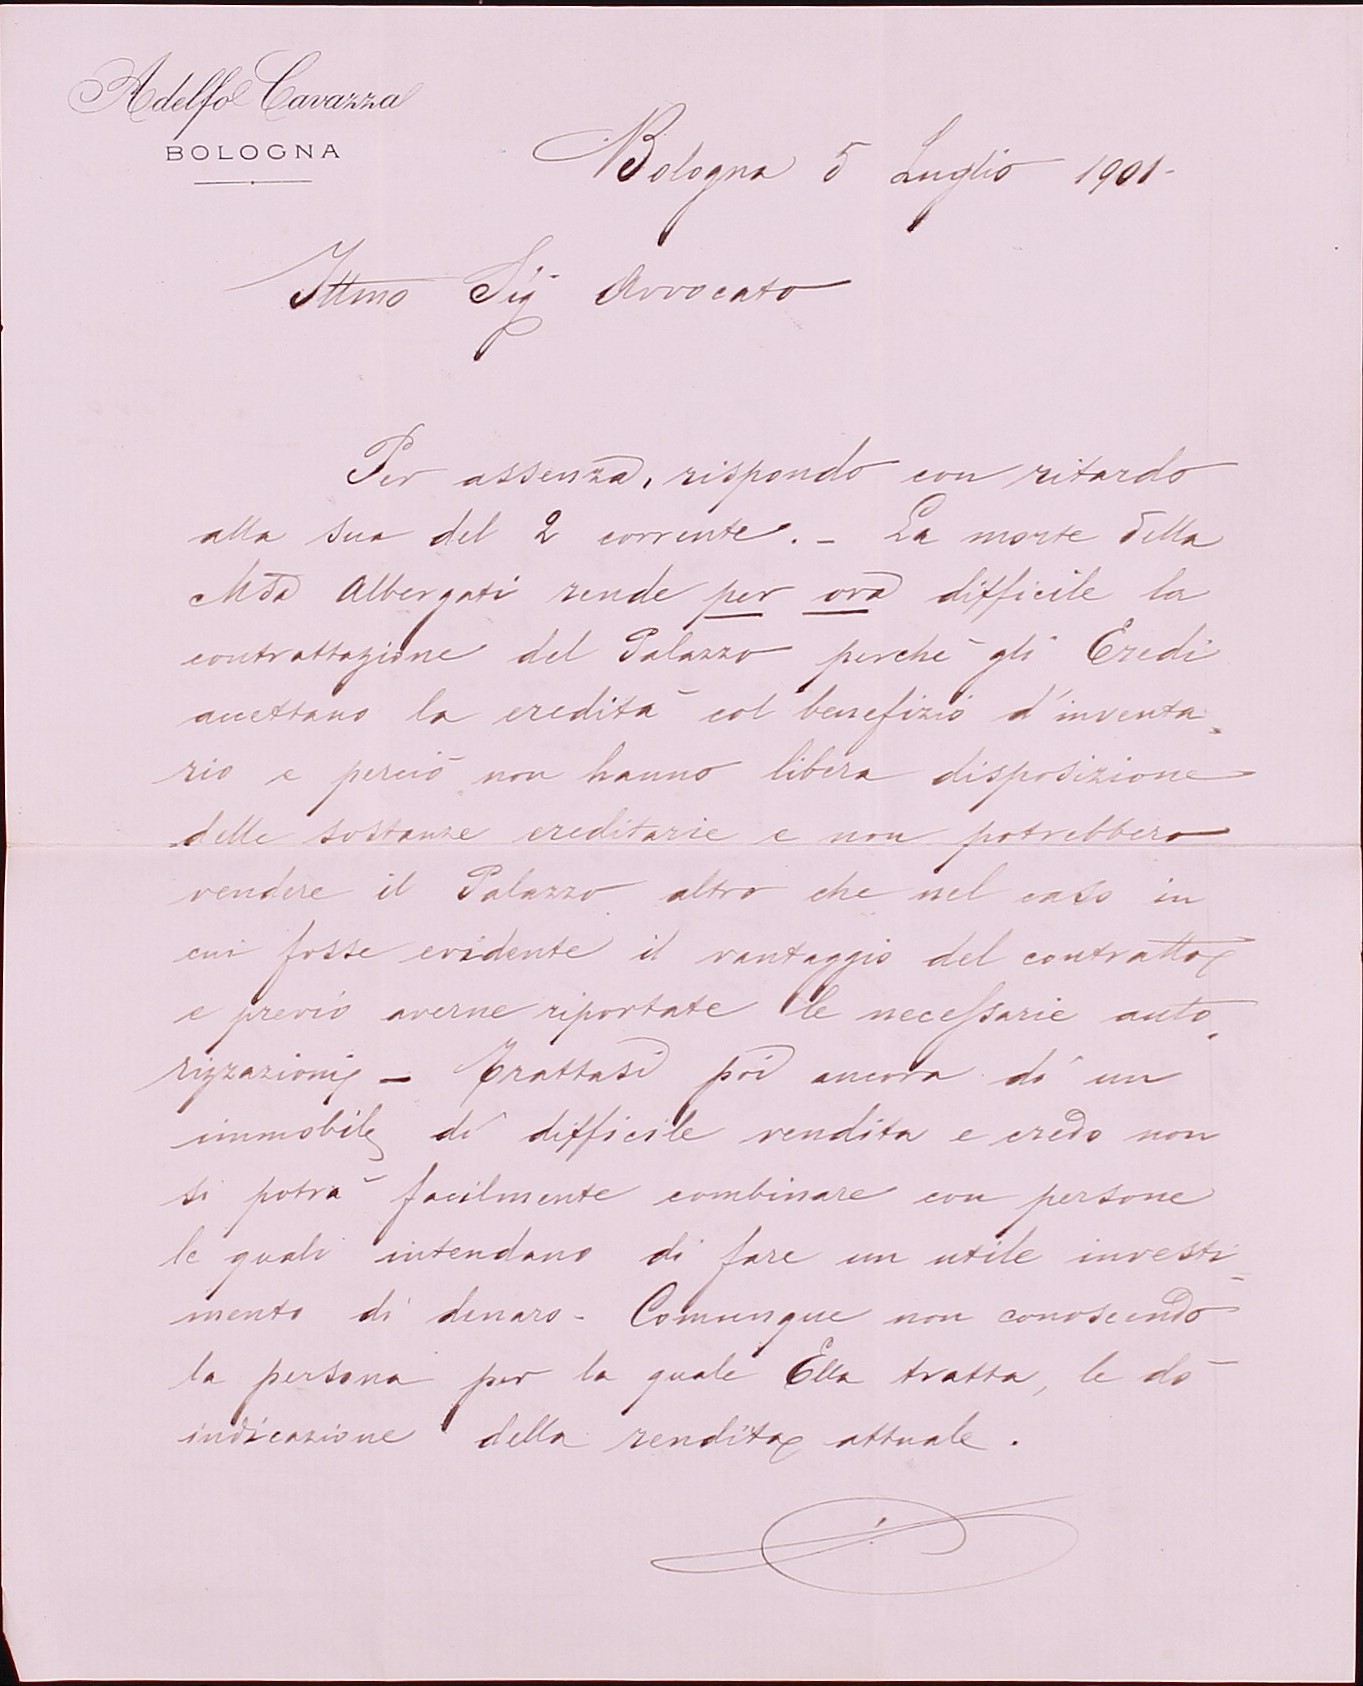 Adelfo Cavazza
BOLOGNA
Bologna 5 Luglio 1901-
Illmo Sig Avvocato
Per assenza, rispondo con ritardo
alla sua del 2 corrente. - La morte della
Msa Albergati rende per ora difficile la
contrattazione del Palazzo perchè gli Eredi
accettano la eredità col benefizio d'inventa-
rio e perciò non hanno libera disposizione
delle sostanze ereditarie e non potrebbero
vendere il Palazzo altro che nel caso in
cui fosse evidente il vantaggio del contratto
e previo averne riportate le necessarie auto-
rizzazioni - Trattasi poi ancora di un
immobile di difficile vendita e credo non
si potrà facilmente combinare con persone
le quali intendano di fare un utile investi-
mento di denaro - Comunque non conoscendo
la persona per la quale Ella tratta, le dò
indicazione della rendita attuale.